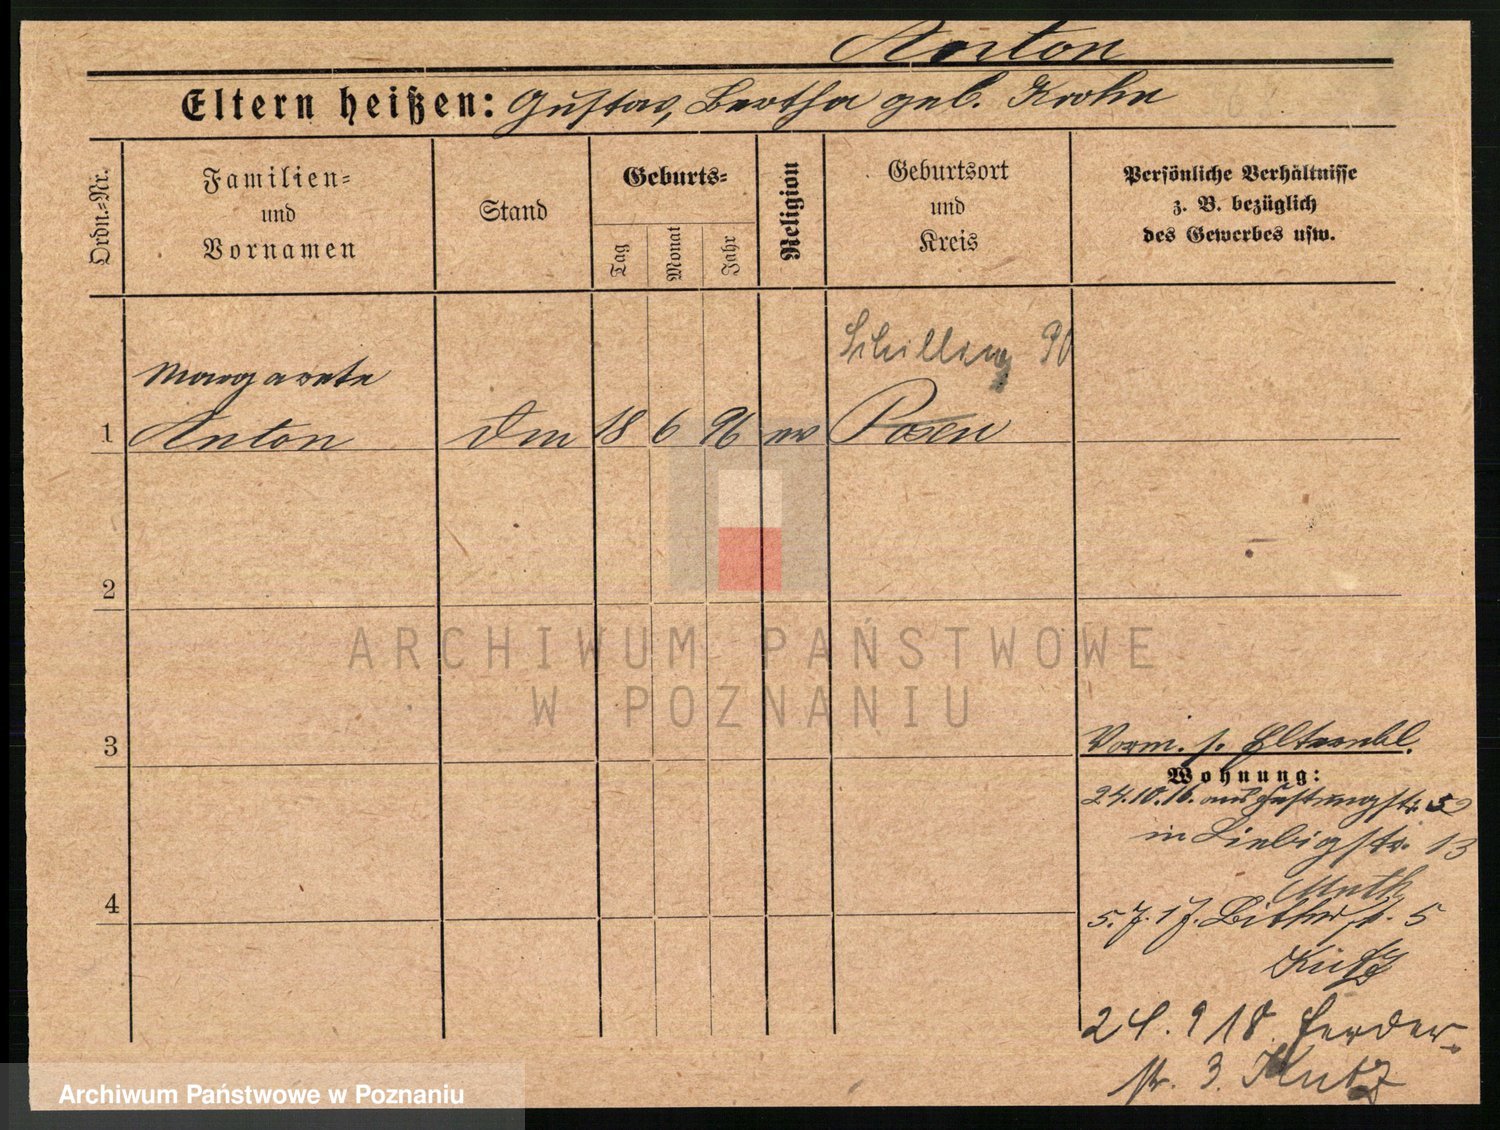 Anton
Eltern heißen: Gustav, Bertha geb. Krohn
Ordn.-Nr.
Familien-
und
Vornamen
Stand
Geburts-
Tag
Monat
Jahr
Religion
Geburtsort
und
Kreis
Persönliche Verhältnisse
z. B. bezüglich
des Gewerbes usw.
Schilling 90
Margarete
1 Anton 18 6 96 ev Posen
2
3
4
ARCHIWUM PAŃSTWOWE
W POZNANIU
Vorm. s. Elternbl.
Wohnung:
24.10.16. aus Festungstr. 52
in Liebigstr. 13
Muth
5.7.17. 5
24. 9 18.
str. 3.
Archiwum Państwowe w Poznaniu